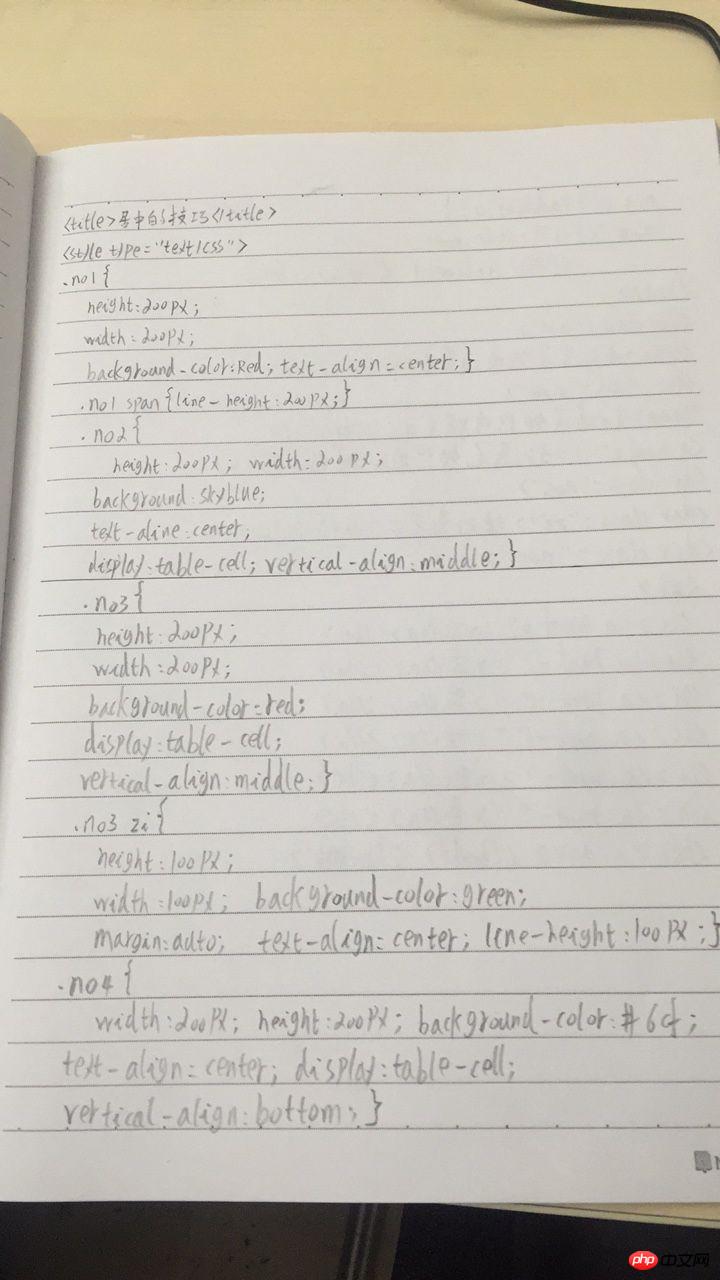 <title>居中的技巧</title>
<style type="text/css">
.no1{
height:200px;
width:200px;
background-color:Red; text-align:center;}
.no1 span{line-height:200px;}
.no2{
height:200px; width:200px;
background:skyblue;
text-aline:center;
display:table-cell; vertical-align:middle;}
.no3{
height:200px;
width:200px;
background-color:red;
display:table-cell;
vertical-align:middle;}
.no3 zi{
height:100px;
width:100px; background-color:green;
margin:auto; text-align:center; line-height:100px;}
.no4{
width:200px; height:200px; background-color:#6cf;
text-align:center; display:table-cell;
vertical-align:bottom;}
php中文网